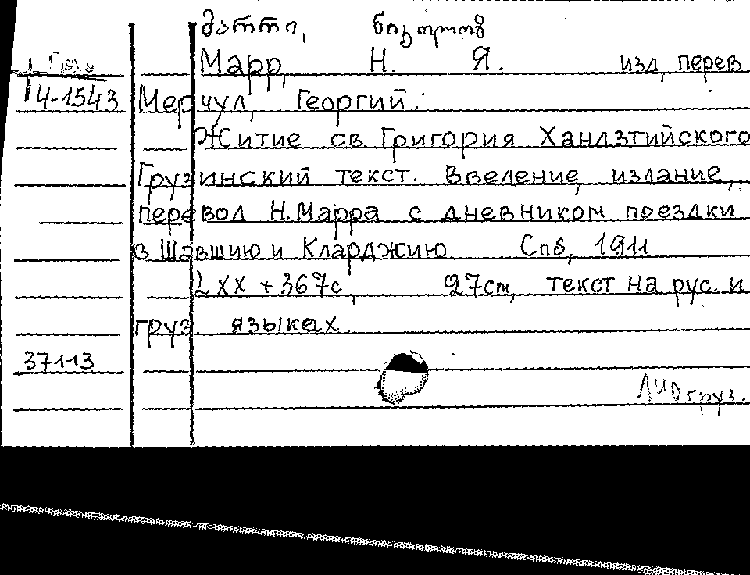 მარრი, ნიკოლოზ
Марр, Н. Я. изд, перев
14-1543 Мерчул, Георгий.
Житие св. Григория Хандзтийского
Грузинский текст. Введение, издание,
перевод Н. Марра с дневником поездки
в Шавшию и Кларджию Спб, 1911
LXX + 367с, 27см, текст на рус. и
груз. языках.
37113
груз.